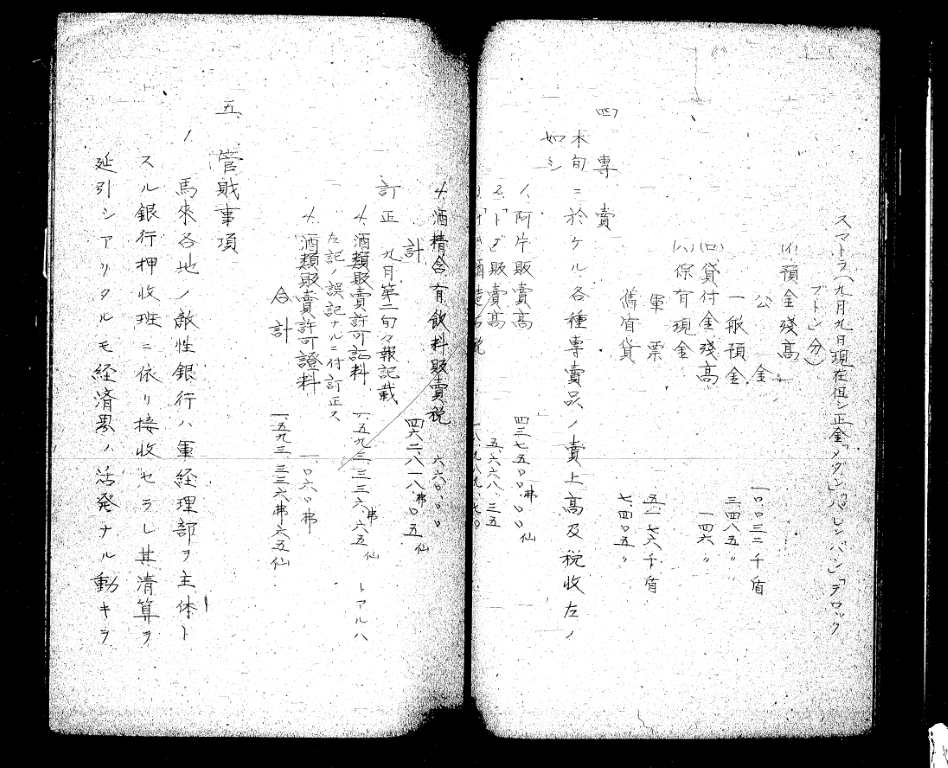 スマトラ(九月九日現在但シ正金「メダン」「パレンバン」「テロック
ブトン」分)
(イ)預金殘高
公金 一〇〇三二千盾
一般預金 三四八五〃
(ロ)貸付金殘高 一四六〃
(ハ)保有現金
軍票 五一七六千盾
舊有貨 七四〇五〃
(四)專賣
本旬ニ於ケル各種專賣品ノ賣上高及税收左ノ
如シ
1、阿片販賣高 四三七五〇・〇〇弗仙
2、「トバ」販賣高 五、六六八、三五
4、酒精含有飲料販賣税 六六〇、〇〇
計 四六二八一八弗〇五仙
訂正 九月第二旬々報記載
4、酒類販賣許可証料 一五九三三三六弗六五仙 トアルハ
左記ノ誤記ナルニ付訂正ス
4、酒類販賣許可證料 一〇六〇弗
合計 一五九三三三六弗六五仙
五、管賍事項
1 馬來各地ノ敵性銀行ハ軍経理部ヲ主体ト
スル銀行押收班ニ依リ接收セラレ其清算ヲ
延引シアリタルモ経済界ノ活発ナル動キヲ